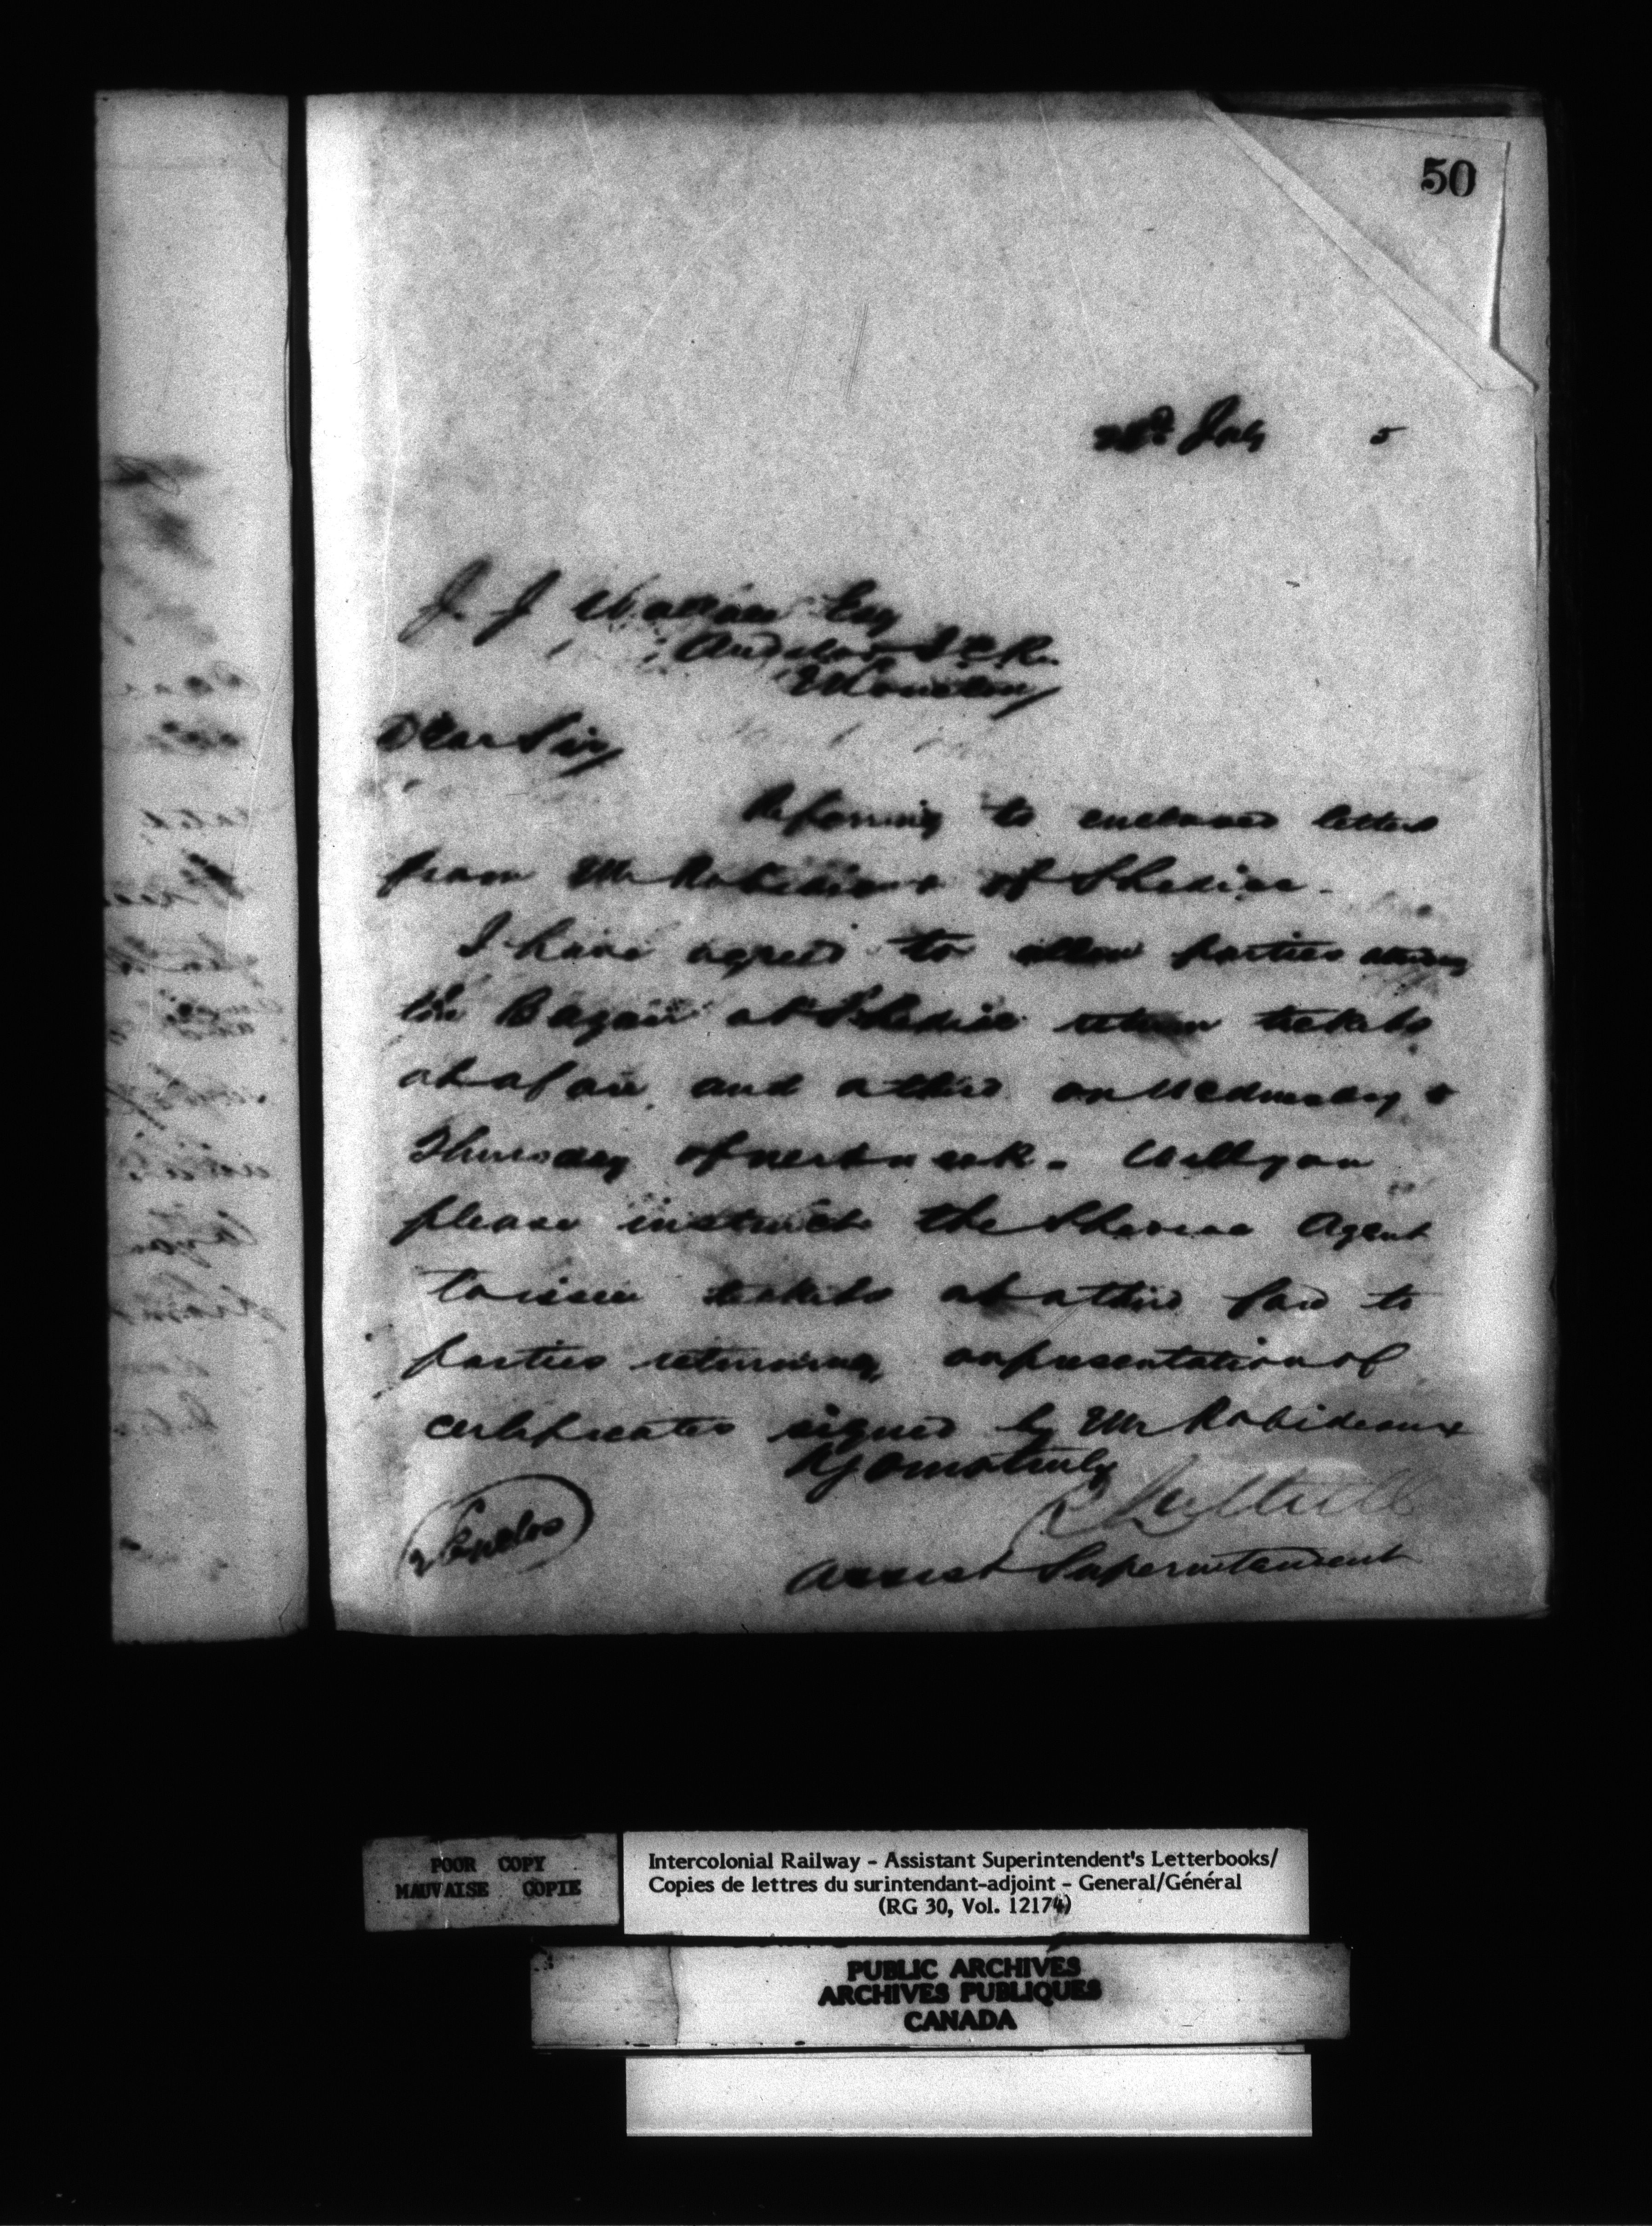 50
July 5
J. J. Wallace Esq
Auditor I C R
Moncton
Dear Sir
Referring to enclosed letters
from Mr Robideaux of Shediac.
I have agreed to allow parties attending
the Bazaar at Shediac return tickets
at a fare and a third on Wednesday &
Thursday of next week. Will you
please instruct the Shediac Agent
to issue tickets at a third fare to
parties returning, on presentation of
certificates signed by Mr Robideaux
Yours truly
Assist Superintendent
POOR COPY
MAUVAISE COPIE
Intercolonial Railway - Assistant Superintendent's Letterbooks/
Copies de lettres du surintendant-adjoint - General/Général
(RG 30, Vol. 12174)
PUBLIC ARCHIVES
ARCHIVES PUBLIQUES
CANADA